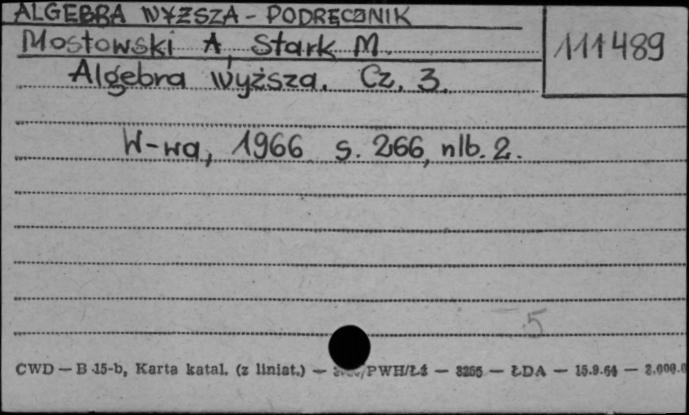 ALGEBRA WYŻSZA - PODRĘCZNIK
Mostowski A, Stark M.
111489
Algebra wyższa. Cz. 3.
W-wa, 1966 s. 266, nlb. 2.
5
CWD — B 15-b, Karta katal. (z liniat.) — /PWH/Łż — 3265 — ŁDA — 15.9.64 — 2.000.0